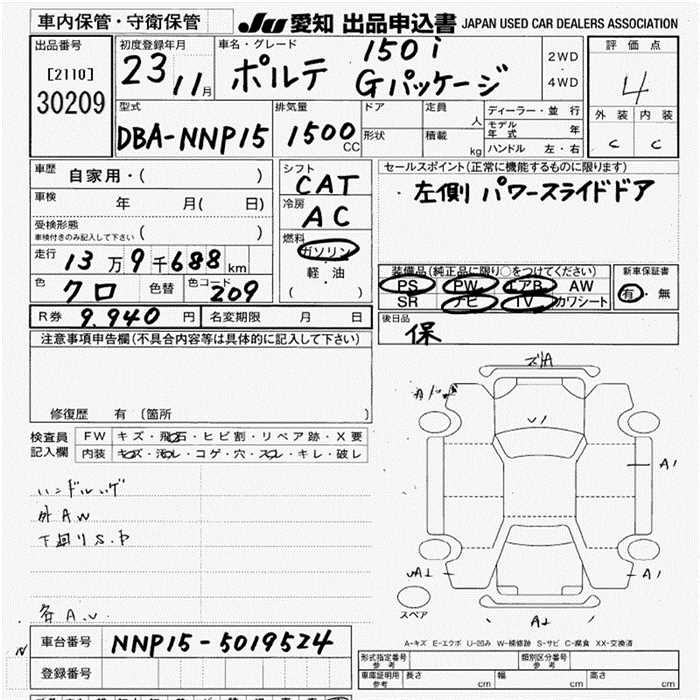 車内保管・守衛保管
JU 愛知 出品申込書 JAPAN USED CAR DEALERS ASSOCIATION
出品番号
[2110]
30209
初度登録年月
23 11月
車名・グレード
150i
ポルテ Gパッケージ
2WD
・
4WD
評価点
4
外装 内装
C C
型式
DBA-NNP15
排気量
1500 CC
ドア
形状
定員 人
積載 kg
ディーラー・並行
モデル年式 年
ハンドル 左・右
車歴 自家用・( )
車検 年 月( 日)
受検形態
車検付きのみ記入して下さい ( )
走行 13万9千688km
色 クロ 色替 色コード 209
シフト
CAT
冷房
AC
燃料
ガソリン
・
軽・油
( )
セールスポイント(正常に機能するものに限ります)
・左側 パワースライドドア
装備品(純正品に限り○をつけてください)
PS PW エアB AW
SR ナビ TV カワシート
新車保証書
有・無
R券 9,940 円 名変期限 月 日
後日品
保
注意事項申告欄(不具合内容等は具体的に記入して下さい)
修復歴 有 〔箇所 〕
検査員記入欄
FW キズ・飛石・ヒビ割・リペア跡・X要
内装 キズ・汚レ・コゲ・穴・スレ・キレ・破レ
外AW
下回りS.P
車台番号 NNP15-5019524
登録番号
A1
A1
スペア
A-キズ E-エクボ U-凹み W-補修跡 S-サビ C-腐食 XX-交換済
形式指定番号 参考
類別区分番号 参考
車庫証明用 参考 長さ cm 幅 cm 高さ cm